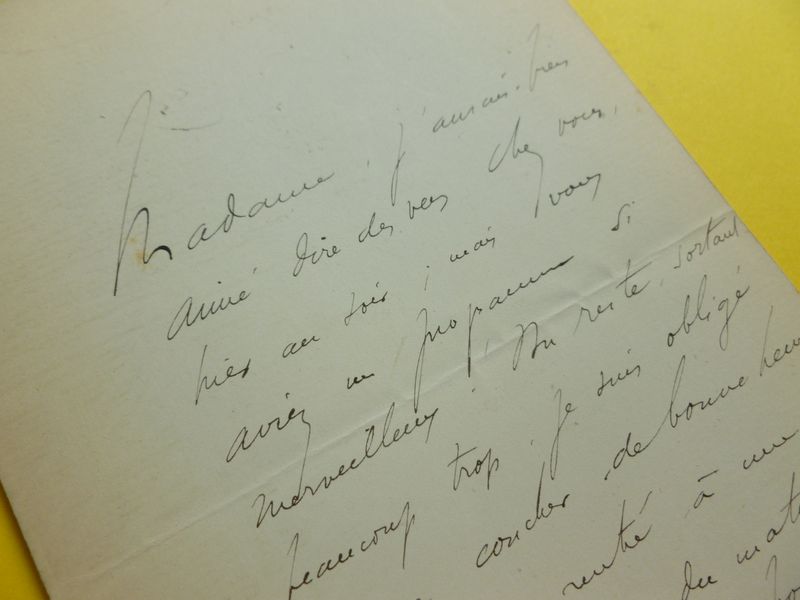 Madame, j'aurais bien
aimé dire des vers chez vous,
hier au soir, mais vous
aviez un programme si
merveilleux ! Du reste, sortant
beaucoup trop, je suis obligé
coucher de bonne heu
rentré à une
du mat